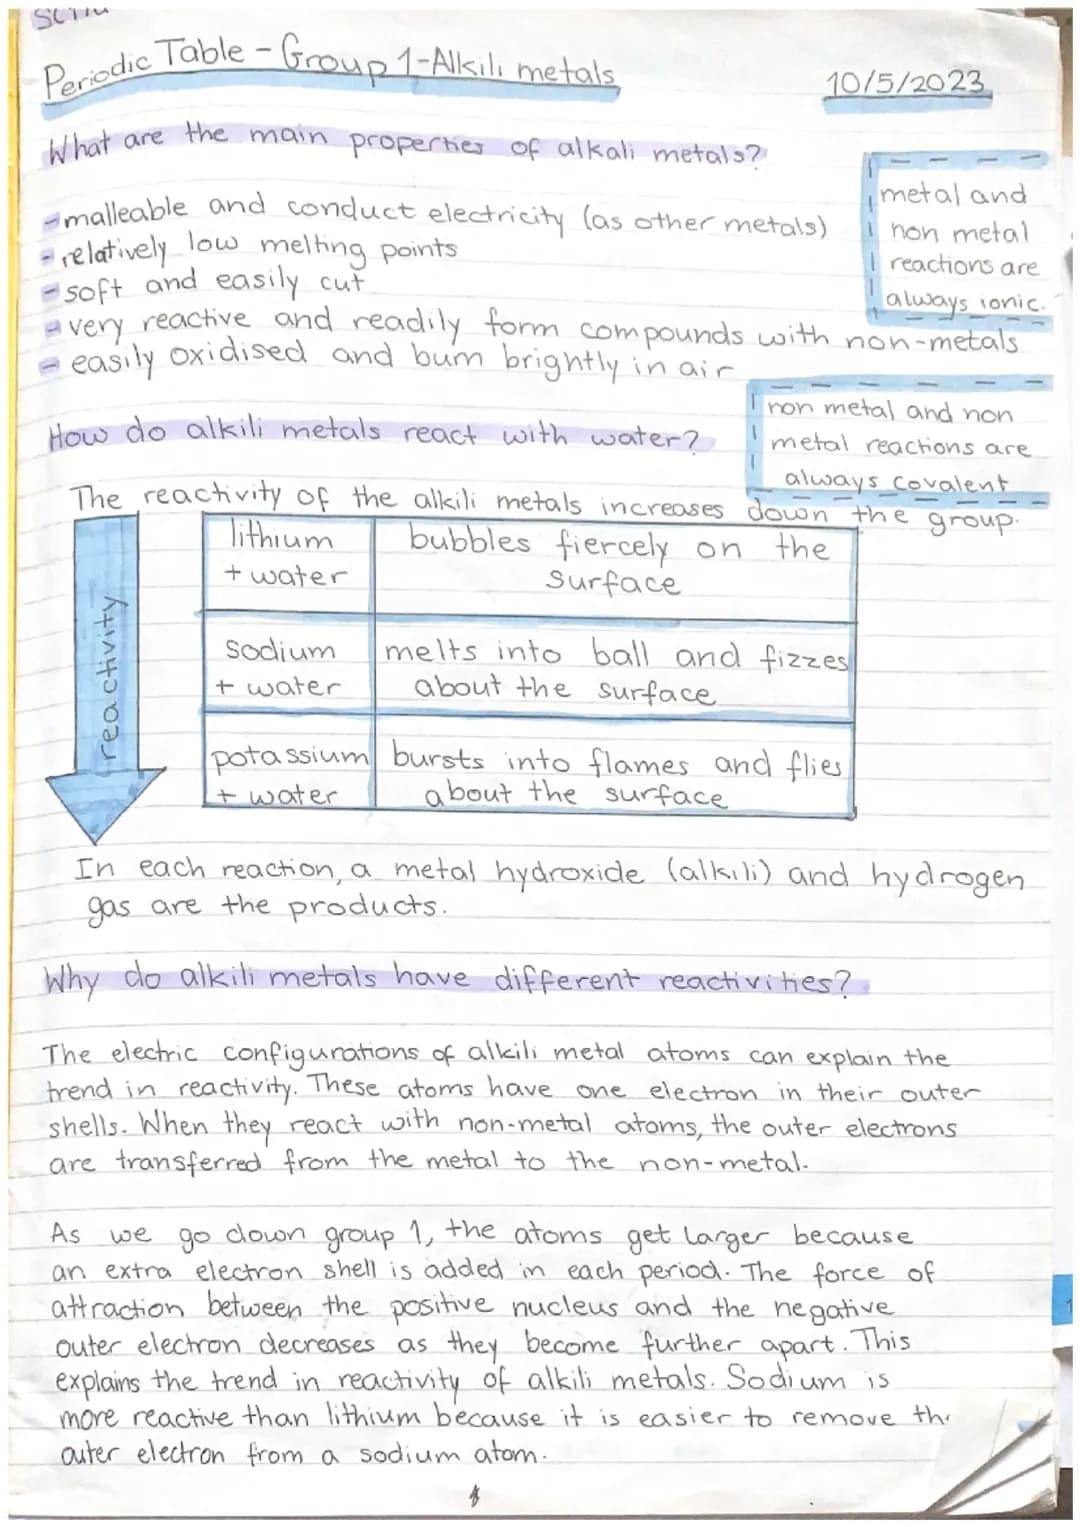 Periodic Table - Group 1 - Alkili metals
10/5/2023
What are the main properties of alkali metals?
- malleable and conduct electricity (as other metals)
- relatively low melting points
- soft and easily cut
- very reactive and readily form compounds with non-metals
- easily oxidised and burn brightly in air
metal and
non metal
reactions are
always ionic.
How do alkili metals react with water?
non metal and non
metal reactions are
always covalent
The reactivity of the alkili metals increases down the group.
reactivity
lithium
+ water
bubbles fiercely on the
surface
sodium
+ water
melts into ball and fizzes
about the surface
potassium
+ water
bursts into flames and flies
about the surface
In each reaction, a metal hydroxide (alkili) and hydrogen
gas are the products.
Why do alkili metals have different reactivities?
The electric configurations of alkili metal atoms can explain the
trend in reactivity. These atoms have one electron in their outer
shells. When they react with non-metal atoms, the outer electrons
are transferred from the metal to the non-metal.
As we go down group 1, the atoms get larger because
an extra electron shell is added in each period. The force of
attraction between the positive nucleus and the negative
outer electron decreases as they become further apart. This
explains the trend in reactivity of alkili metals. Sodium is
more reactive than lithium because it is easier to remove the
outer electron from a sodium atom.